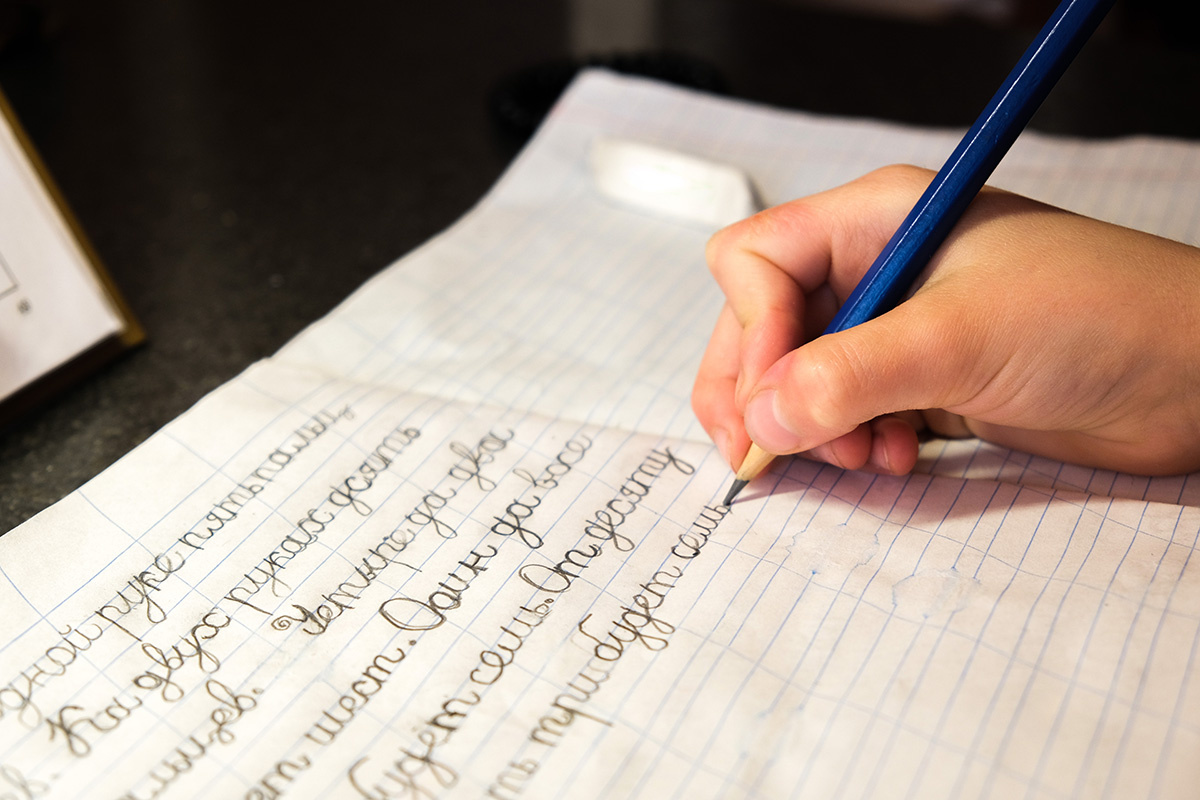 одной руке пять пальц
в. На двух руках десять
альцев. Четыре да два
ет шест. Один да восе
будет семь. От десяту
ть три будет семь